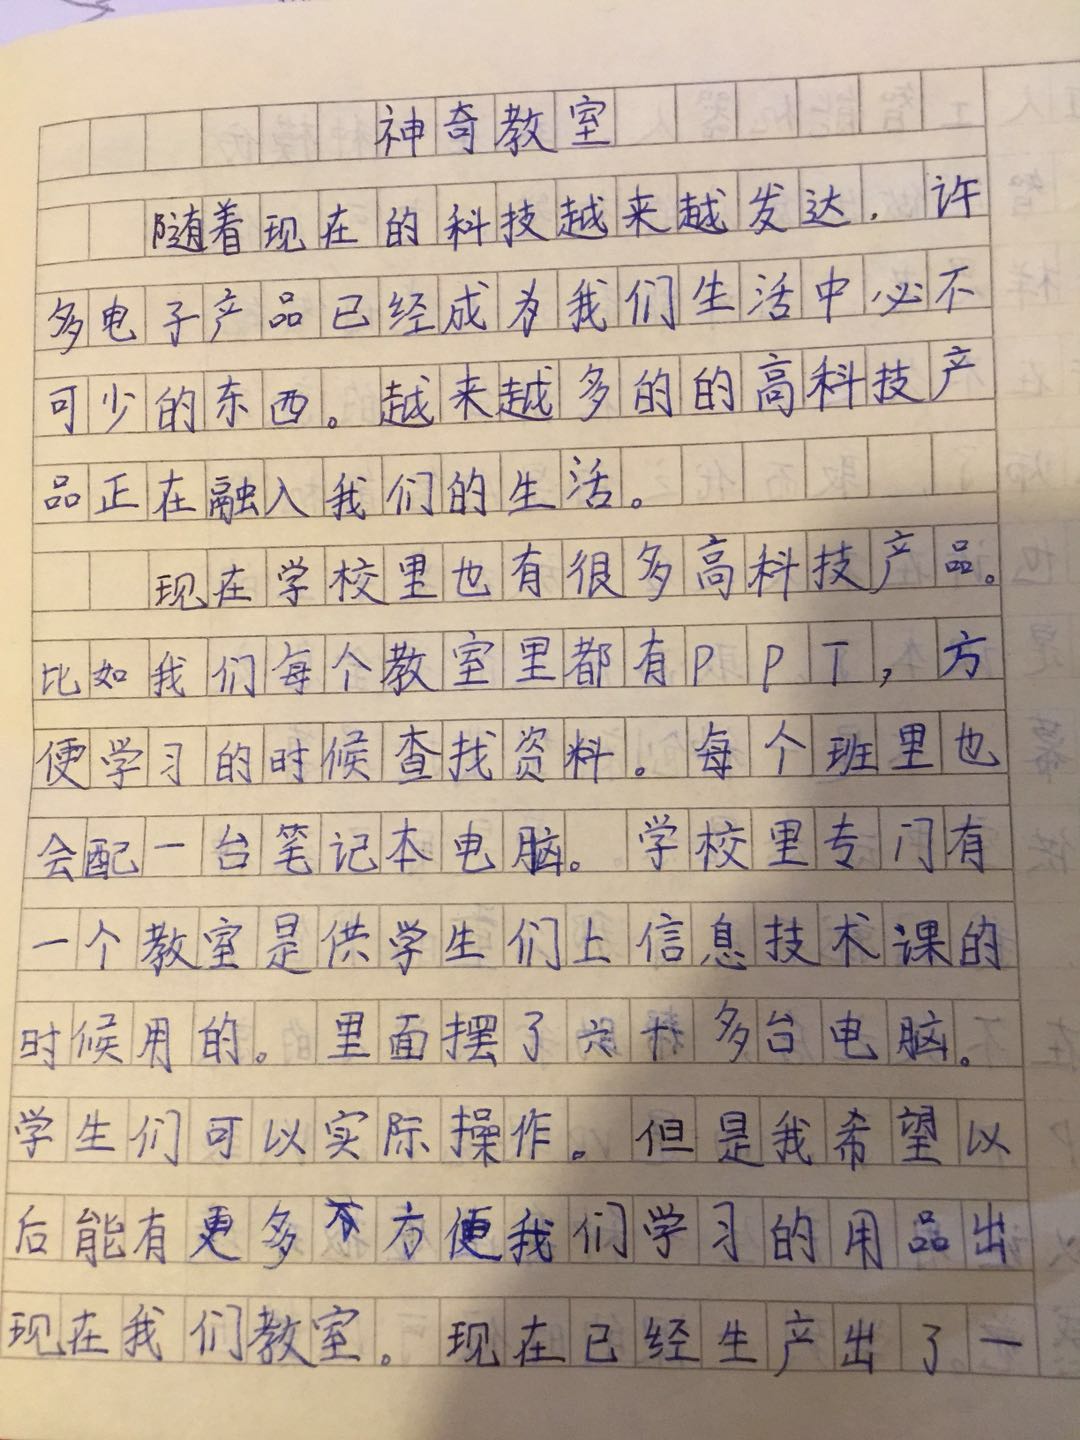 神奇教室
随着现在的科技越来越发达，许
多电子产品已经成为我们生活中必不
可少的东西。越来越多的的高科技产
品正在融入我们的生活。
现在学校里也有很多高科技产品。
比如我们每个教室里都有PPT，方
便学习的时候查找资料。每个班里也
会配一台笔记本电脑。学校里专门有
一个教室是供学生们上信息技术课的
时候用的。里面摆了六十多台电脑。
学生们可以实际操作。但是我希望以
后能有更多方便我们学习的用品出
现在我们教室。现在已经生产出了一